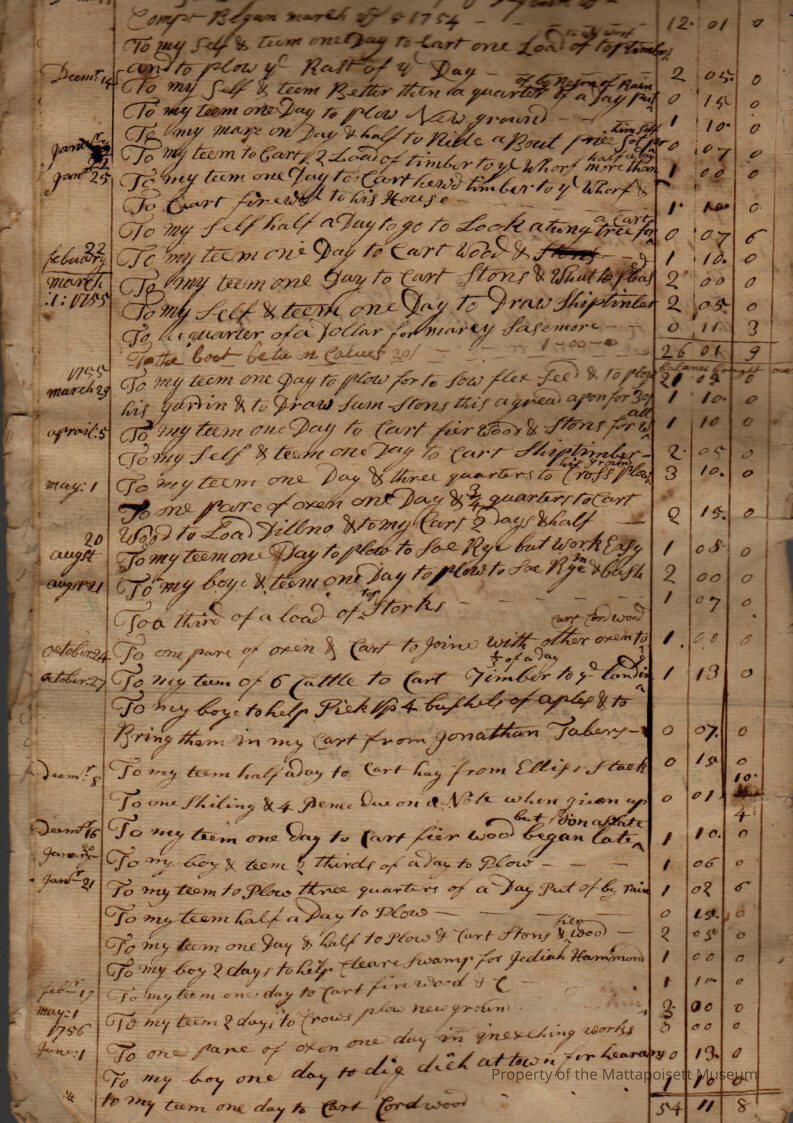 Compt Began march ye 5 1754 - - - 12 01 0
To my Self & teem one Day to Cart one Load of top timber
and to plow ye Rast of ye Day - 2 05 0
Decmr 14 To my Self & teem Better then a quarter of a Day put of by Reson of Rain 0 15 0
To my teem one Day to plow New ground - - 1 10 0
To my mare on Day & half to Ride a Bout him Self 0 07 0
Janur To my teem to Cart 2 Load of timber to ye Whorf more than half a Day 1 00 0
Janr 25 To my teem one Day to Cart hewd timber to ye Whorf &
To Cart firewd to his House - 1 10 0
To my Self half a Day to go to Look a tung tree for a Cart 0 07 6
febuary 22 To my teem one Day to Cart Wood & 1 10 0
march To my teem one Day to Cart Stons & What he pleas 2 00 0
:1: 1755 To my Self & teem one Day to Draw Shiptimber 2 05 0
To a quarter of a Dollar for marey Sasemore 0 11 3
To the boot between Calves 20/ - 1-00-0 26 01 9
1755 balance brought over
march 29 To my teem one Day to plow for to Sow flex Seed & to plow 21 05 0
his gardin & to Draw Sum Stons this agread apon for 30/ 1 10 0
aprail:5 To my teem one Day to Cart fier Wood & Stons for all 1 10 0
To my Self & teem one Day to Cart Shiptimber - 2 05 0
may: 1 To my teem one Day & three quarters to Cross plow his ground 3 10 0
To one pare of oxen one Day & 3/4 quarters to Cart
Wood to Load Dillno & to my Cart 2 days & half - 2 15 0
augst 20 To my teem one Day to plow to Soe Rye but Work Easy 1 05 0
augst 21 To my boye & teem one Day to plow to Soe Rye in & bush 2 00 0
To a third of a load of top Storks - - - 1 07 0
october:24 To one pare of oxen & Cart to Joine with other oxen to cart Cord wood 1 00 0
october:27 To my teem of 6 Cattle to Cart Timber to ye landin 3/4 of a day 1 13 0
To my boye to help Pick Up 4 bushels of aples & to
Bring them in my Cart from Jonathan Tabers - 0 07 0
Decmr 8 To my teem half a day to Cart hay from Elliss Stack 0 15 0
To one Shiling & 4 Pence due on a Note when given up 0 01 4
Decmr 16 To my teem one day to Cart fier wood began late but 1 10 0
Janary To my boy & teem 2 thirds of a day to Plow - - - 1 06 0
Janr 21 To my teem to Plow three quarters of a Day Put of by rain 1 02 6
To my teem half a Day to Plow - - - 0 15 0
To my teem one Day & half to Plow & Cart Stons & fier wood - 2 05 0
To my boy 2 days to help Cleare Swamp for Jediah Hammond 1 00 0
febr 17 To my teem one day to Cart fire wood & C - 1 10 0
may:1 To my teem 2 days to Crows plow new groun 3 00 0
1756 To one pare of oxen one day in works 0 00 0
June:1 To my boy one day to dig dich at town for hearary 0 13 0
1 10 0
" to my teem one day to Cart Cordwood 54 11 8
Property of the Mattapoisett Museum